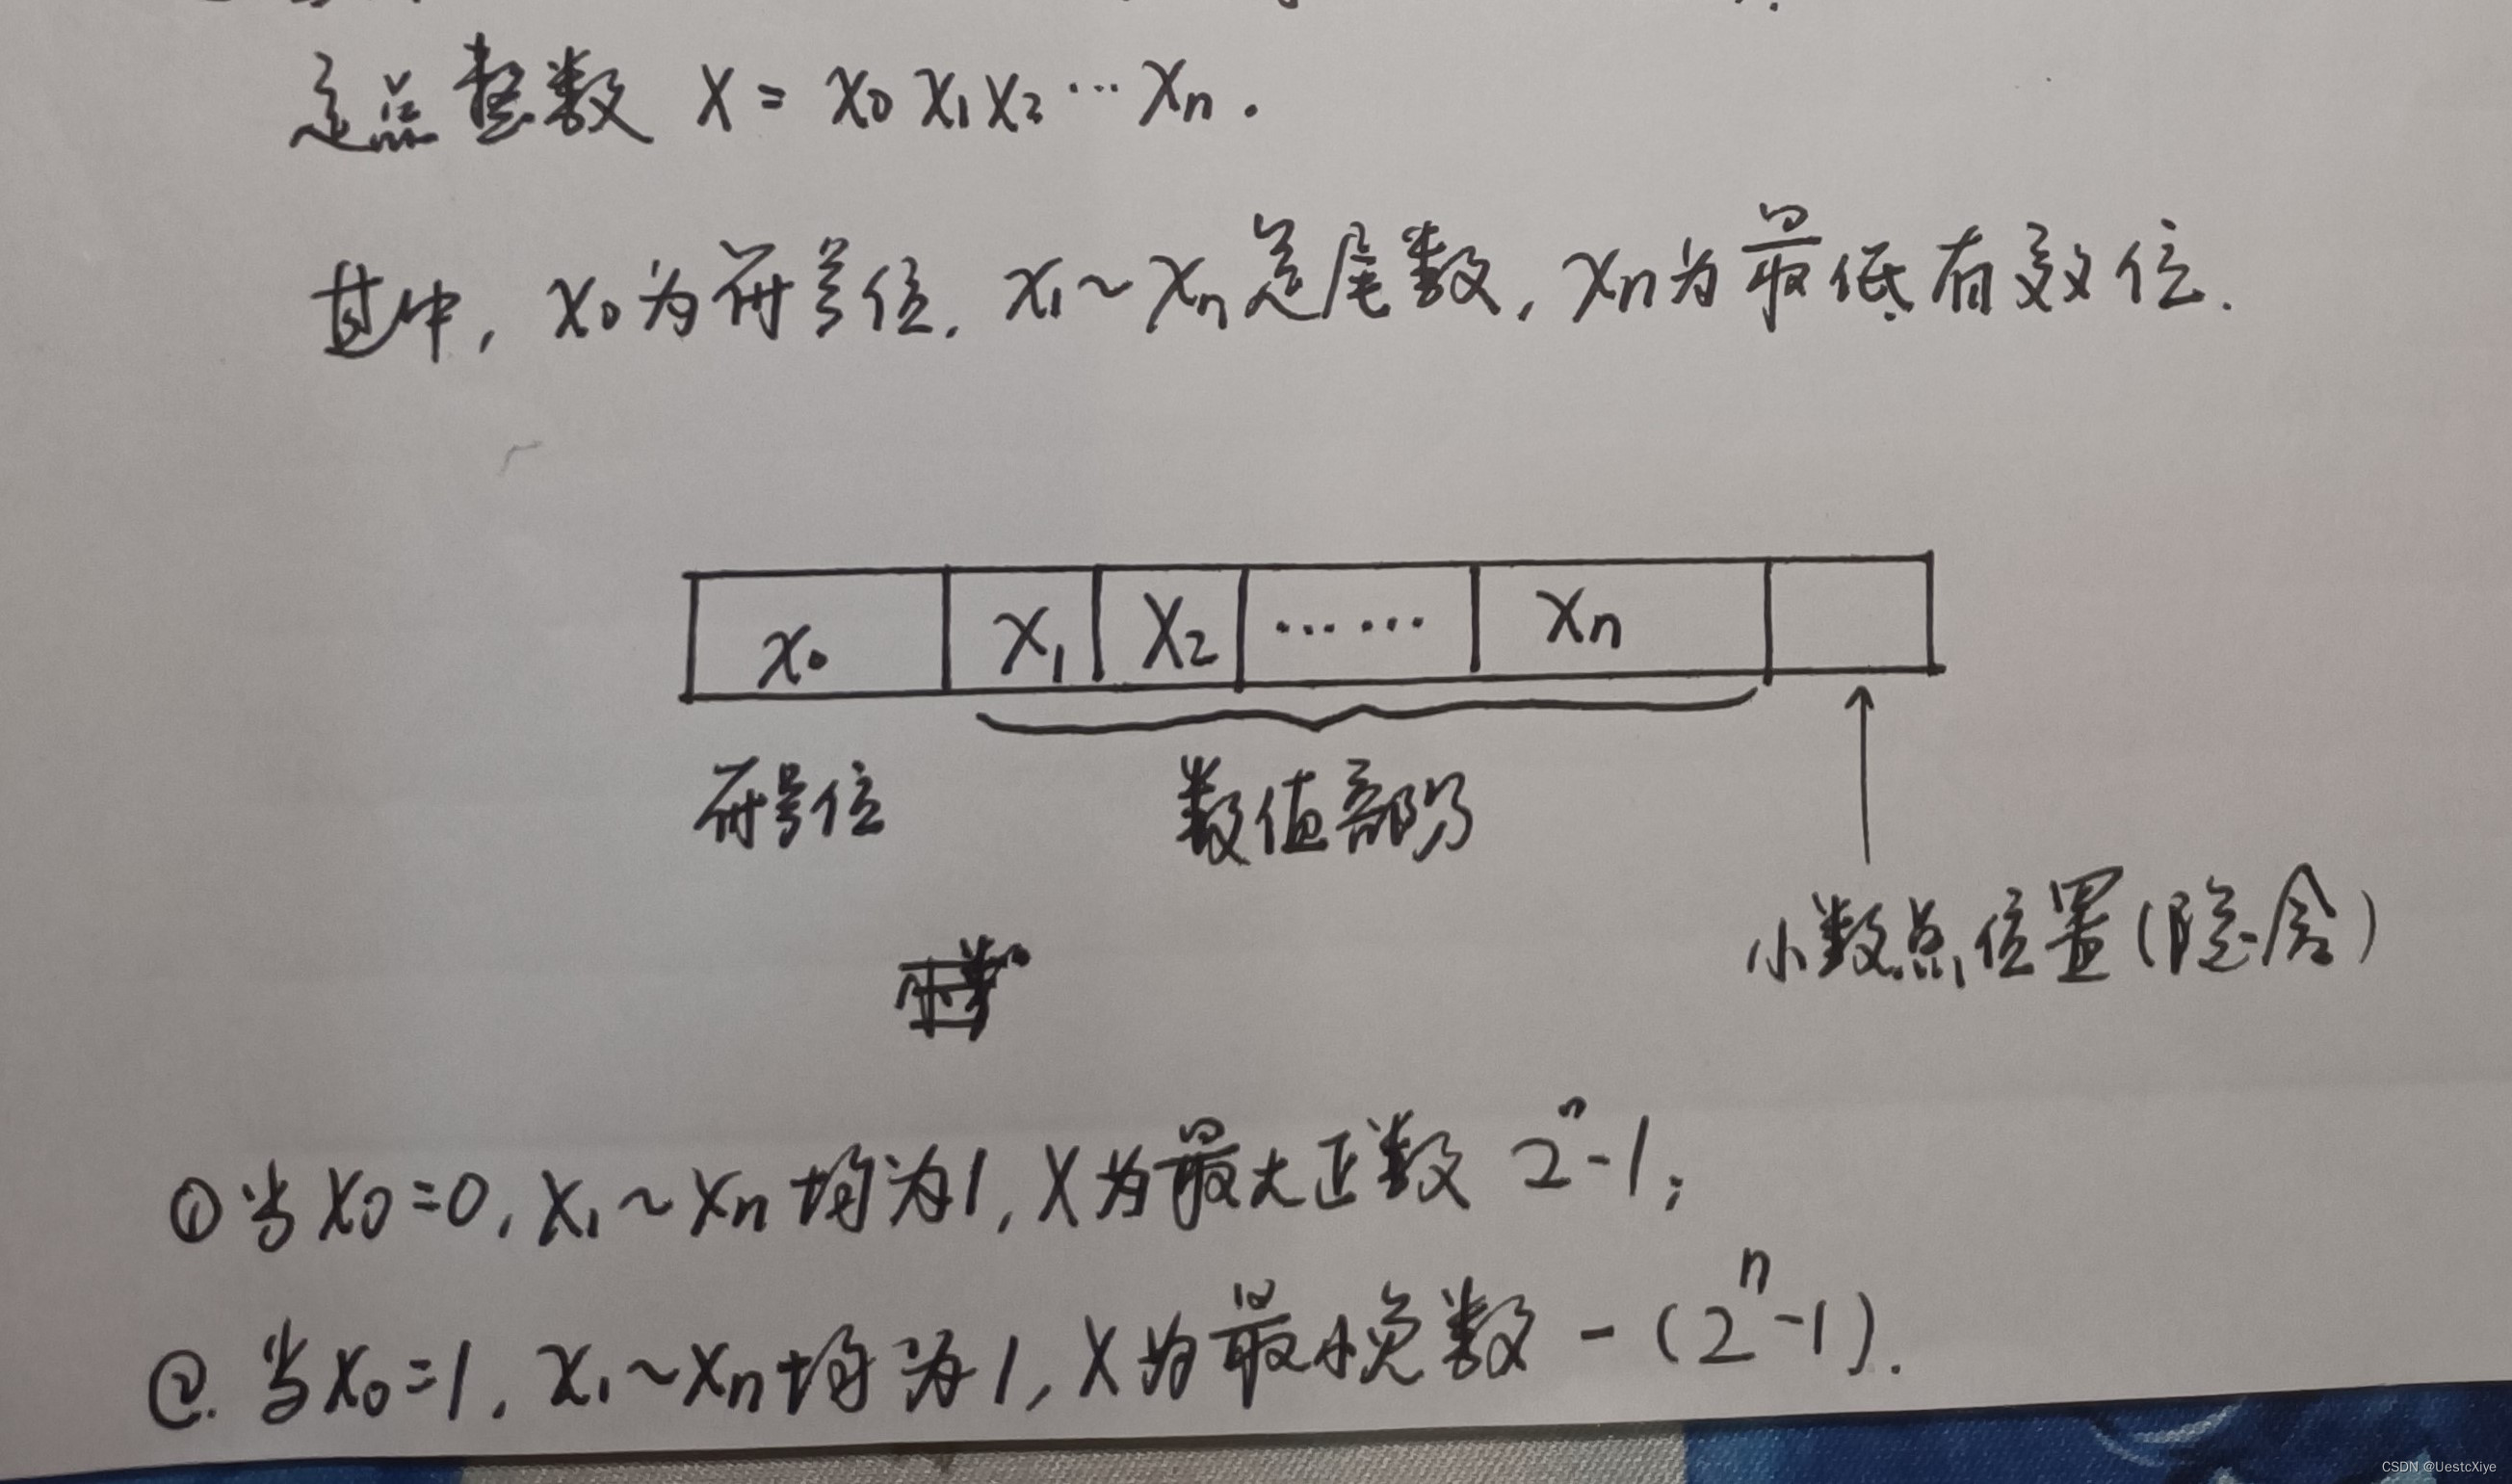 定点整数 X = x₀ x₁ x₂ ··· xₙ.
其中, x₀为符号位. x₁~xₙ是尾数, xₙ为最低有效位.
x₀ x₁ x₂ ······ xₙ
符号位 数值部分
小数点位置(隐含)
① 当 x₀=0, x₁~xₙ 均为1, X为最大正数 2ⁿ-1;
②. 当x₀=1, x₁~xₙ均为1, X为最小负数 -(2ⁿ-1).
CSDN @UestcXiye